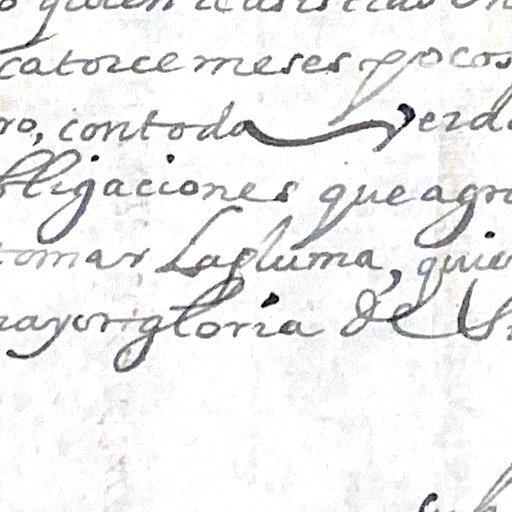 catorce meses pocos
ro, con toda verda
bligaciones que agra
tomar la pluma, quie
mayor gloria de